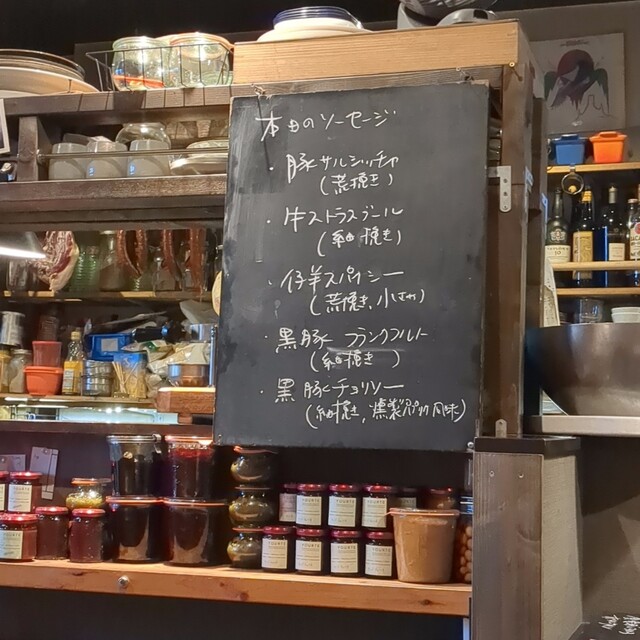 本日のソーセージ
・豚サルシッチャ
(荒挽き)
・牛ストラスブール
(細挽き)
・仔羊スパイシー
(荒挽き、小さめ)
・黒豚 フランクフルト
(細挽き)
・黒豚チョリソー
(細挽き、燻製パプリカ風味)